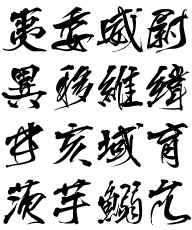 夷委威尉
異移維緯
井亥域育
茨芋鰯允